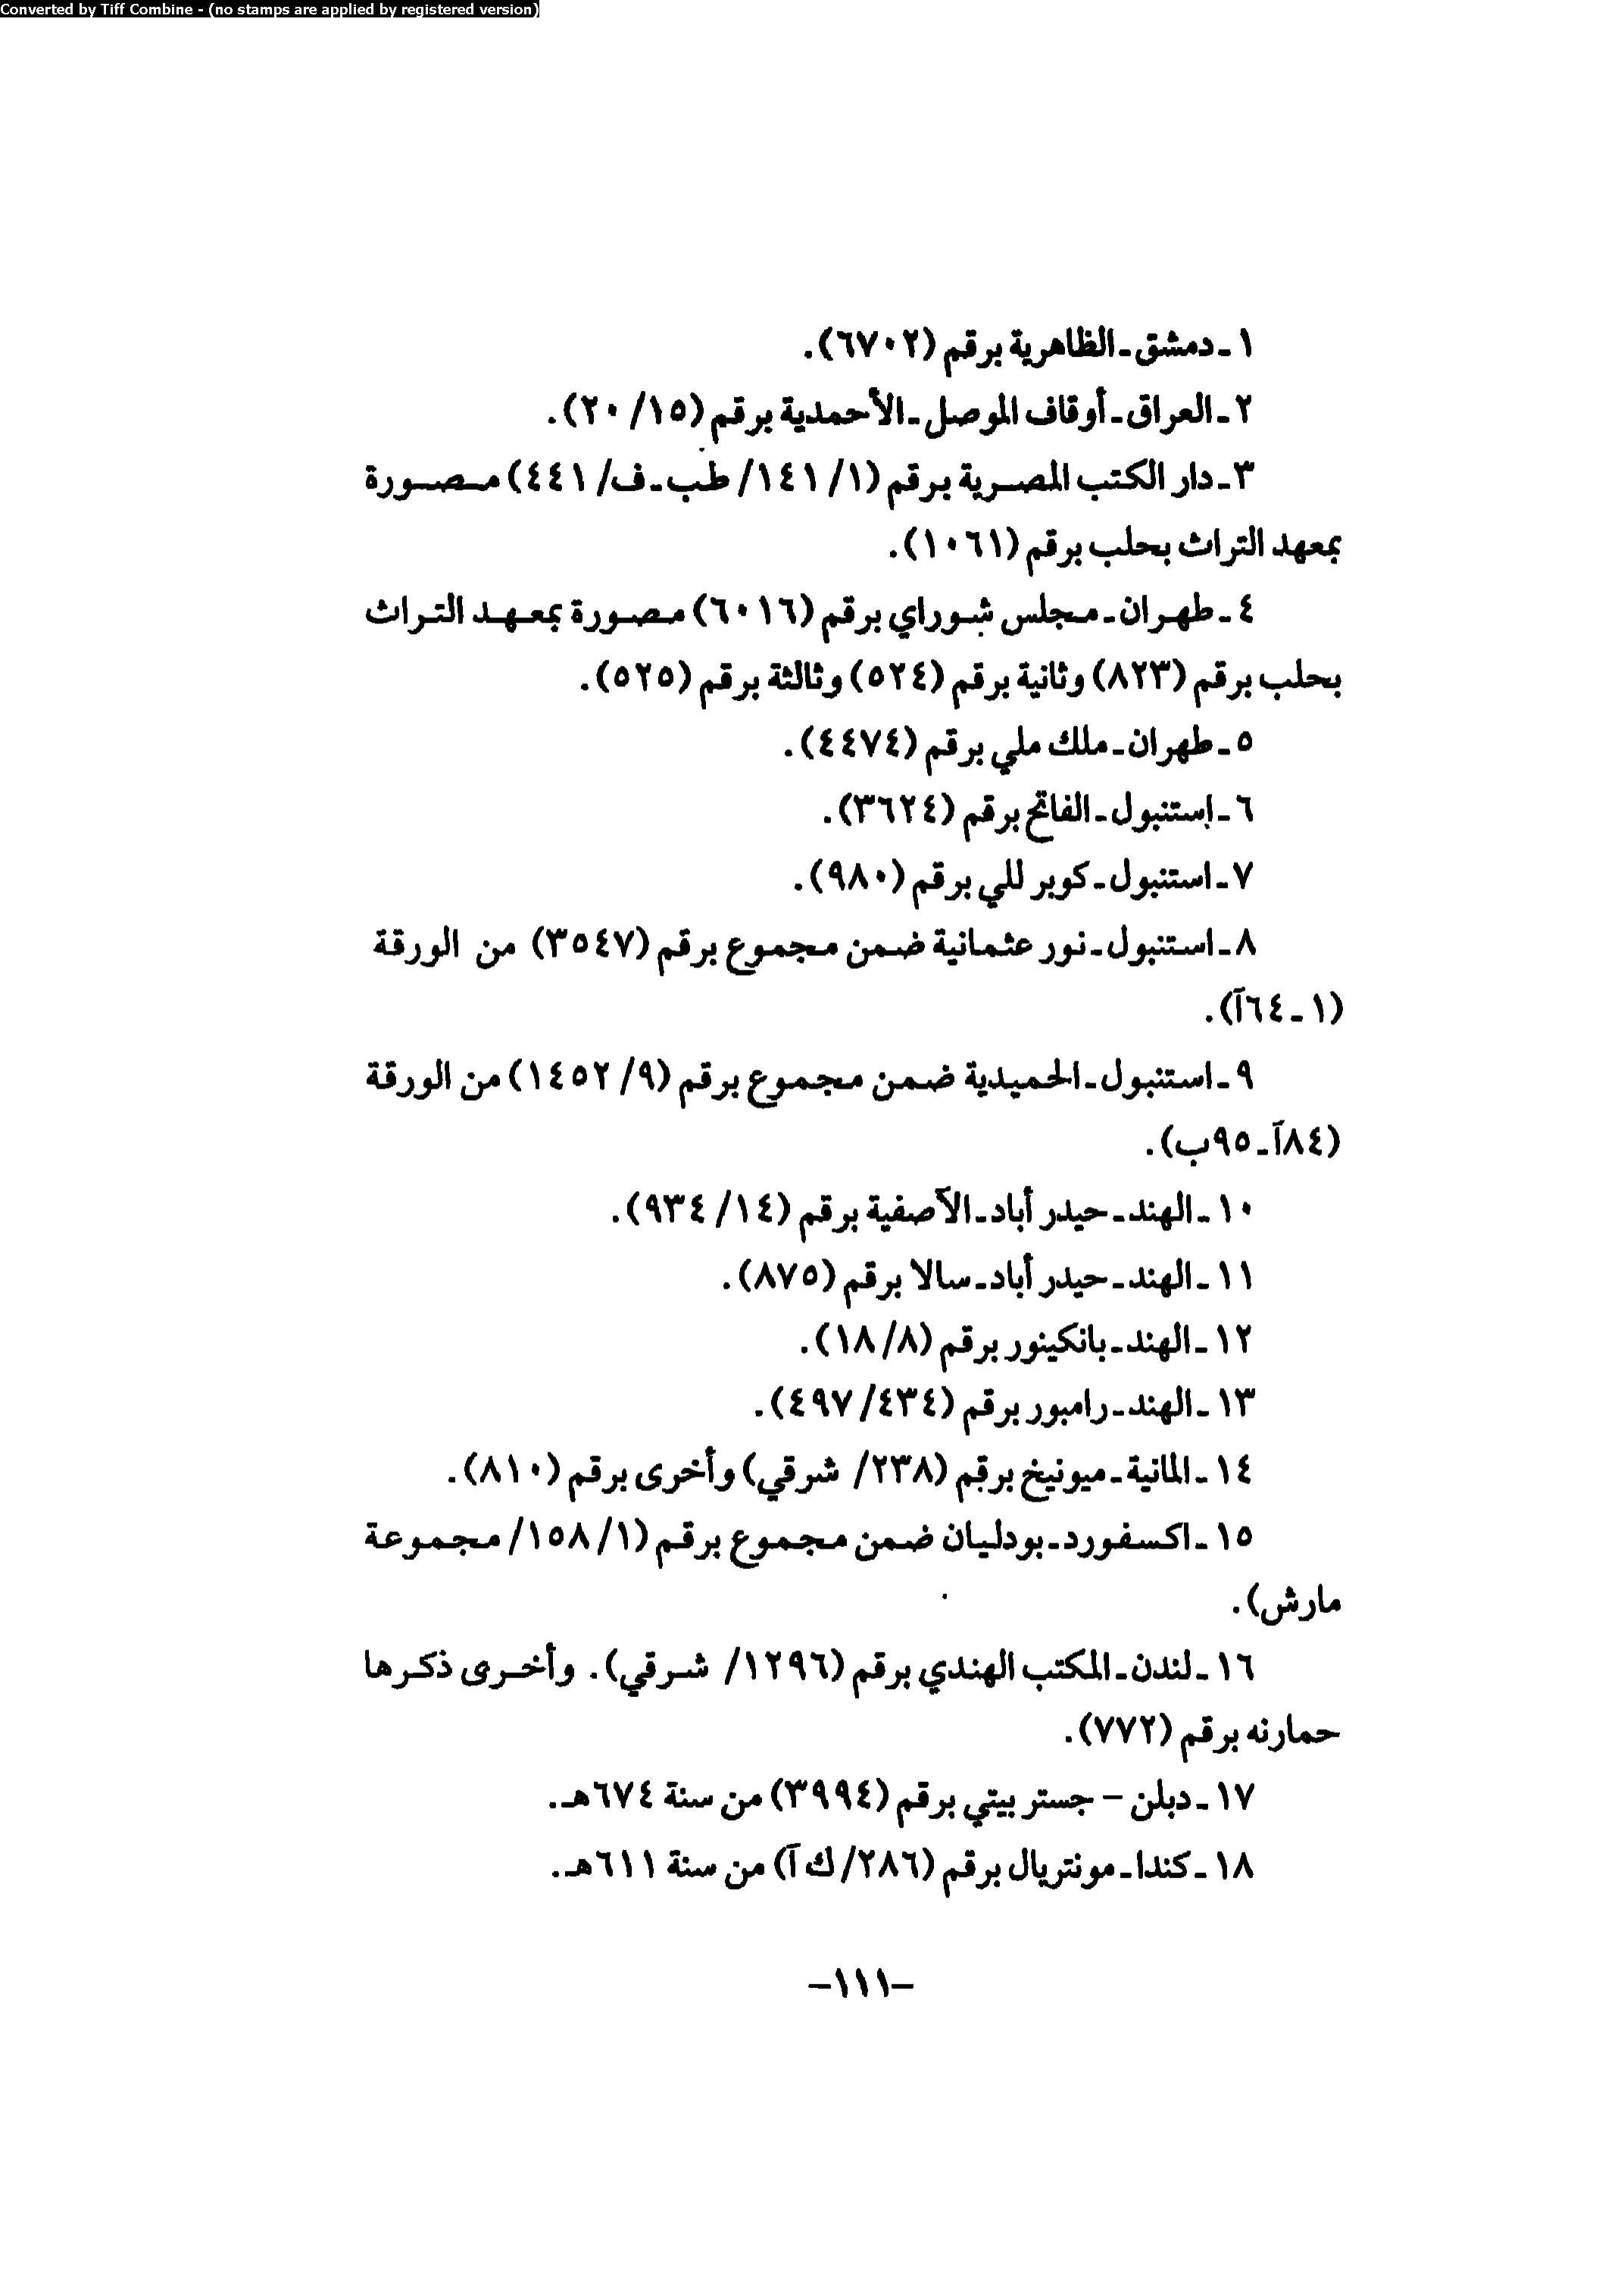 Converted by Tiff Combine - (no stamps are applied by registered version)
١ ـ دمشق ـ الظاهرية برقم (٦٧٠٢).
٢ ـ العراق ـ أوقاف الموصل ـ الأحمدية برقم (١٥/ ٢٠).
٣ ـ دار الكتب المصرية برقم (١/ ١٤١/ طب ـ ف/ ٤٤١) مصورة
بمعهد التراث بحلب برقم (١٠٦١).
٤ ـ طهران ـ مجلس شوراي برقم (٦٠١٦) مصورة بمعهد التراث
بحلب برقم (٨٢٣) وثانية برقم (٥٢٤) وثالثة برقم (٥٢٥).
٥ ـ طهران ـ ملك ملي برقم (٤٤٧٤).
٦ ـ إستنبول ـ الفاتح برقم (٣٦٢٤).
٧ ـ استنبول ـ كوبر للي برقم (٩٨٠).
٨ ـ استنبول ـ نور عثمانية ضمن مجموع برقم (٣٥٤٧) من الورقة
(١ ـ ٦٤آ).
٩ ـ استنبول ـ الحميدية ضمن مجموع برقم (٩/ ١٤٥٢) من الورقة
(٨٤آ ـ ٩٥ب).
١٠ ـ الهند ـ حيدر أباد ـ الآصفية برقم (١٤/ ٩٣٤).
١١ ـ الهند ـ حيدر أباد ـ سالا برقم (٨٧٥).
١٢ ـ الهند ـ بانكينور برقم (٨/ ١٨).
١٣ ـ الهند ـ رامبور برقم (٤٣٤/ ٤٩٧).
١٤ ـ المانية ـ ميونيخ برقم (٢٣٨/ شرقي) وأخرى برقم (٨١٠).
١٥ ـ اكسفورد ـ بودليان ضمن مجموع برقم (١/ ١٥٨/ مجموعة
مارش).
١٦ ـ لندن ـ المكتب الهندي برقم (١٢٩٦/ شرقي). وأخرى ذكرها
حمارنه برقم (٧٧٢).
١٧ ـ دبلن – جستر بيتي برقم (٣٩٩٤) من سنة ٦٧٤هـ.
١٨ ـ كندا ـ مونتريال برقم (٢٨٦/ ك آ) من سنة ٦١١هـ.
–١١١–